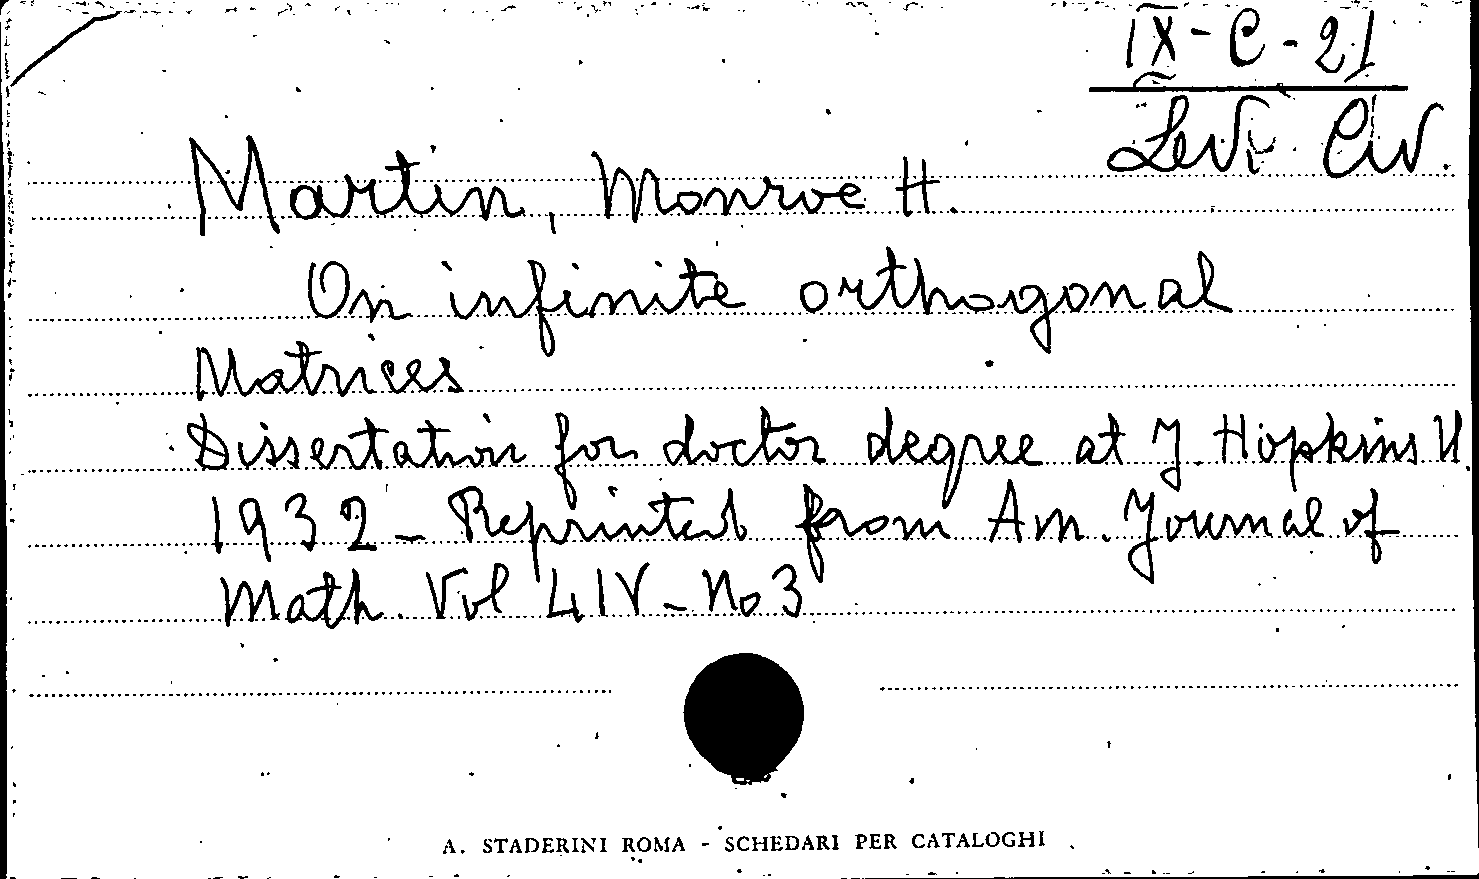 IX-C-21
Levi Civ.
Martin, Monroe H.
On infinite orthogonal
Matrices
Dissertation for doctor degree at J. Hopkins U.
1932 - Reprinted from Am. Journal of
Math. Vol LIV - No 3
A. STADERINI ROMA - SCHEDARI PER CATALOGHI